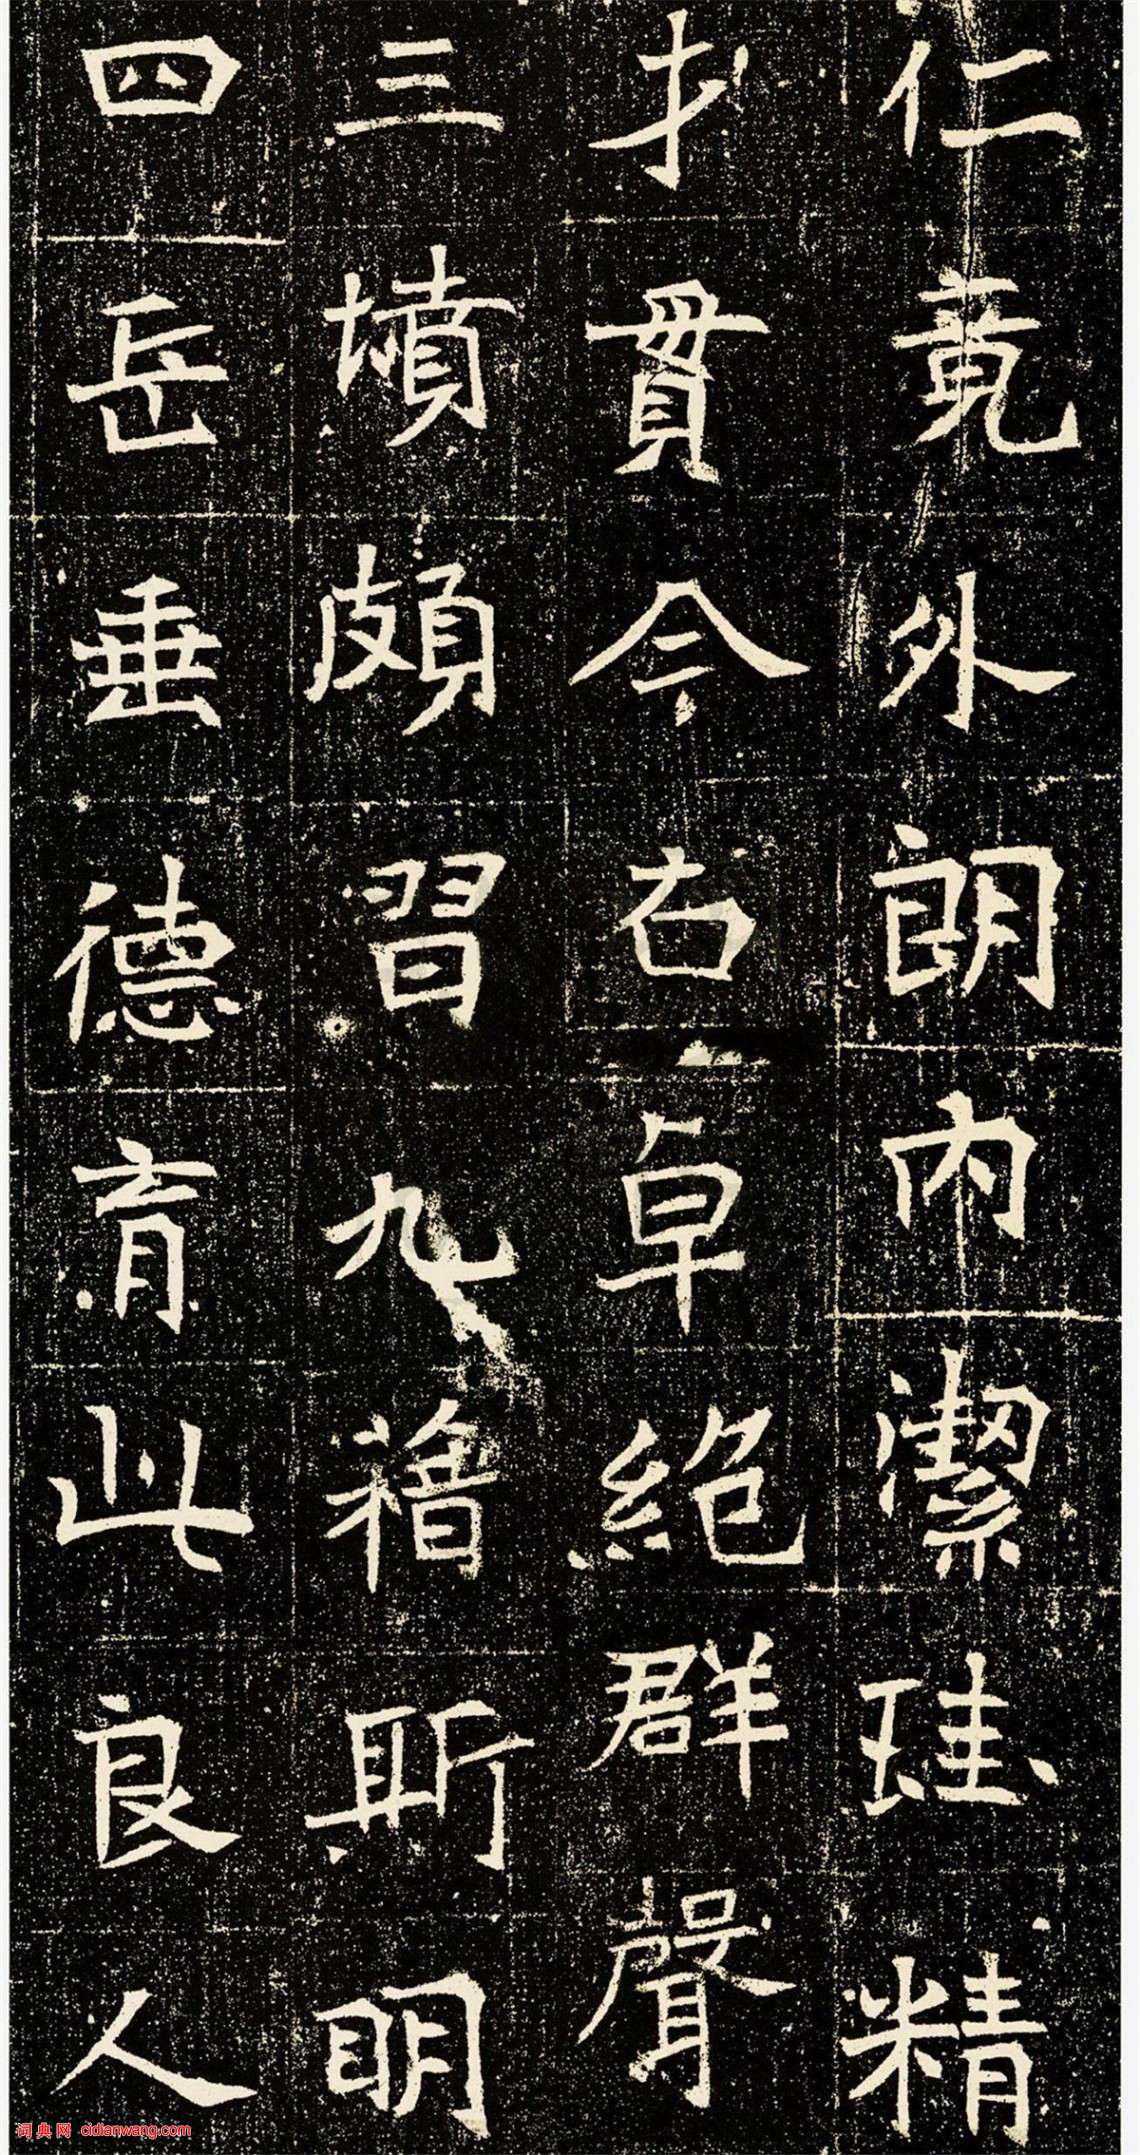 仁竟外朗內潔珪精
才貫今右卓絕群聲
三墳頗習九藉斯明
四岳垂德育此良人
词典网 cidianwang.com